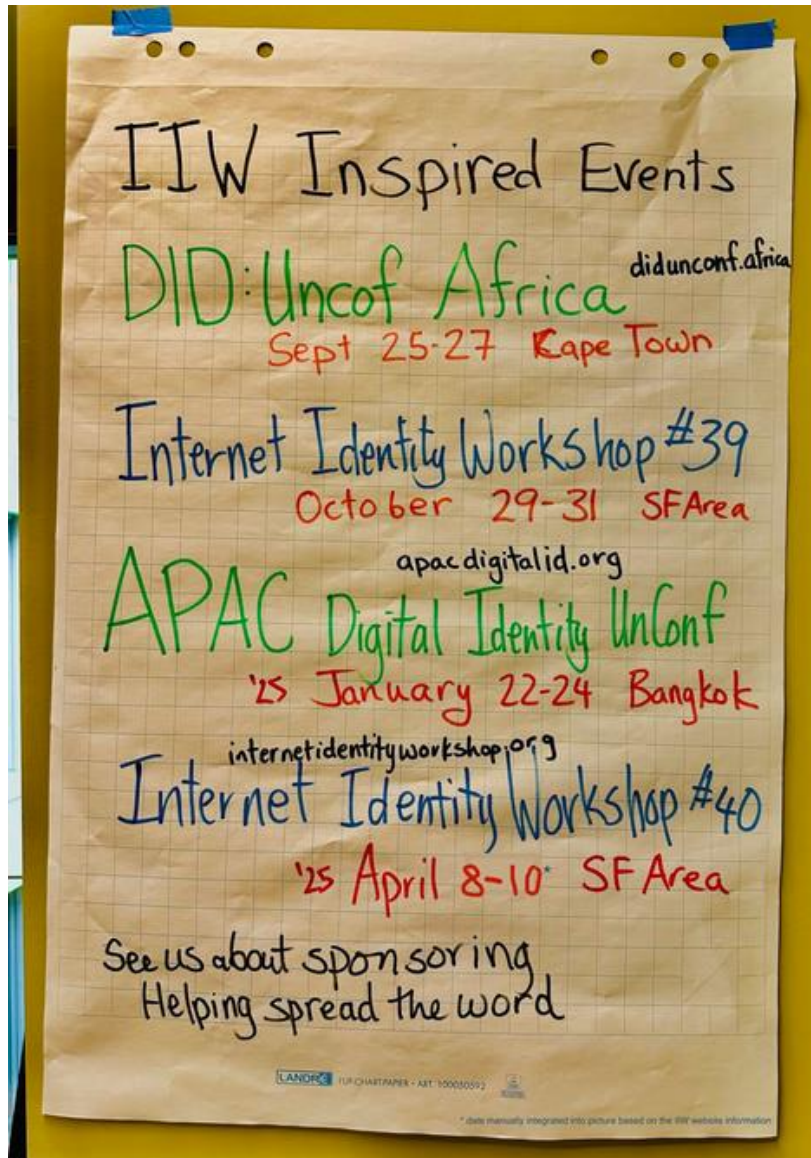 IIW Inspired Events
didunconf.africa
DID:Uncof Africa
Sept 25-27 Cape Town
Internet Identity Workshop #39
October 29-31 SF Area
apacdigitalid.org
APAC Digital Identity UnConf
'25 January 22-24 Bangkok
internetidentityworkshop.org
Internet Identity Workshop #40
'25 April 8-10* SF Area
See us about sponsoring
Helping spread the word
LANDRÉ FLIP-CHARTPAPIER - ART. 100050592
* date manually integrated into picture based on the IIW website information